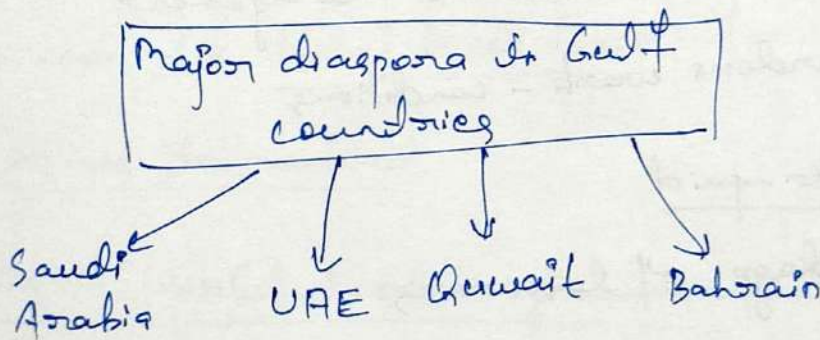 Major diaspora in Gulf
countries
Saudi
Arabia
UAE
Quwait
Bahrain